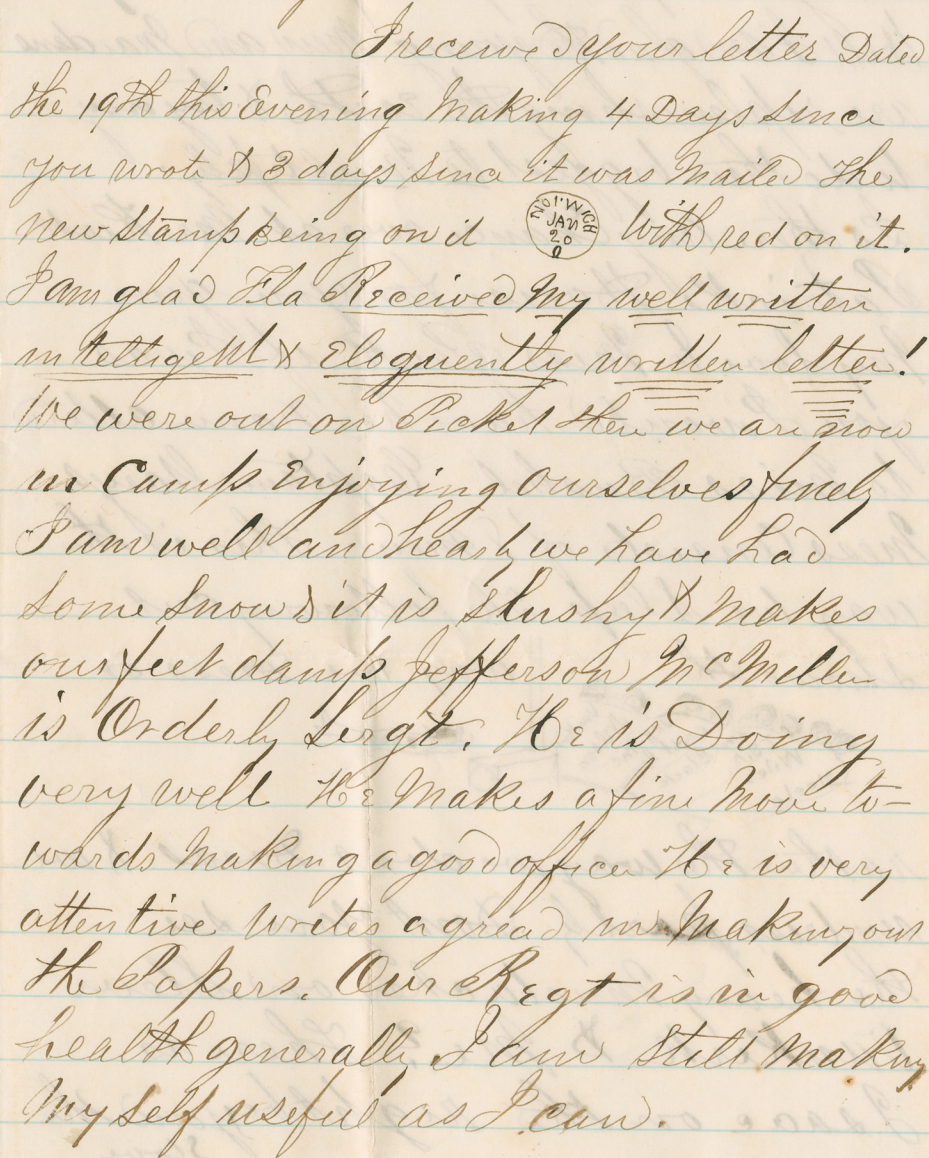 I received your letter Dated
the 19th this Evening Making 4 Days since
you wrote & 3 days since it was Mailed The
new Stamp being on it NORWICH JAN 20 With red on it.
I am glad Fla Received My well written
intelligent & Eloquently written letter!
We were out on Picket then we are now
in Camp Enjoying Ourselves finely
I am well and hearty we have had
some snow & it is slushy & makes
our feet damp Jefferson McMillen
is Orderly Sergt. He is Doing
very well He Makes a fine Move to-
wards Making a good officer He is very
attentive writes a gread in Making out
the Papers. Our Regt is in good
health generally, I am still making
My self useful as I can.